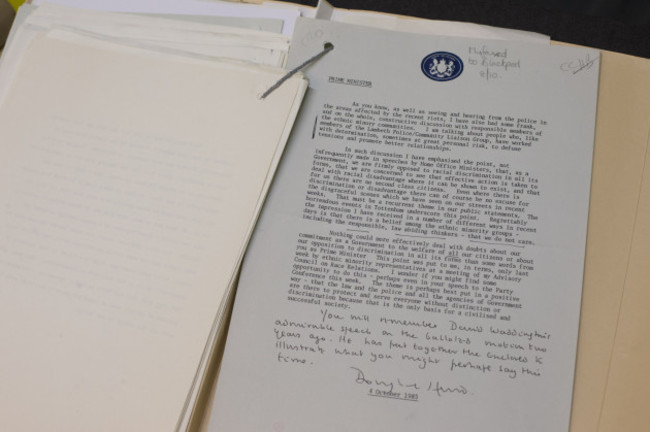 Mufaxed
to Blackpool
8/10.
PRIME MINISTER
As you know, as well as seeing and hearing from the police in
the areas affected by the recent riots, I have also had some frank,
and on the whole, constructive discussion with responsible members of
the ethnic minority communities. I am talking about people who, like
members of the Lambeth Police/Community Liaison Group, have worked
with determination, sometimes at great personal risk, to defuse
tensions and promote better relationships.
In such discussion I have emphasised the point, not
infrequently made in speeches by Home Office Ministers, that, as a
Government, we are firmly opposed to racial discrimination in all its
forms, that we are concerned to see that effective action is taken to
deal with racial disadvantage where it can be shown to exist, and that
for us there are no second class citizens. Even where there is
discrimination or disadvantage there can of course be no excuse for
the disgraceful scenes which we have seen on our streets in recent
weeks. That must be a recurrent theme in our public statements. The
horrendous events in Tottenham underscore this point. Regrettably
the impression I have received in a number of different ways in recent
days is that there is a belief among the ethnic minority groups -
including the responsible, law abiding thinkers - that we do not care.
Nothing could more effectively deal with doubts about our
commitment as a Government to the welfare of all our citizens or about
our opposition to discrimination in all its forms than some words from
you as Prime Minister. This point was put to me, in terms, only last
week by ethnic minority representatives at a meeting of my Advisory
Council on Race Relations. I wonder if you might find some
opportunity to do this - perhaps even in your speech to the Party
Conference this week. The theme is perhaps best put in a positive
way - that the law and the police and all the agencies of Government
are there to protect and serve everyone without distinction or
discrimination because that is the only basis for a civilised and
successful society.
You will remember David Waddington's
admirable speech on the balloted motion two
years ago. He has put together the enclosed to
illustrate what you might perhaps say this
time.
Douglas Hurd.
8 October 1985